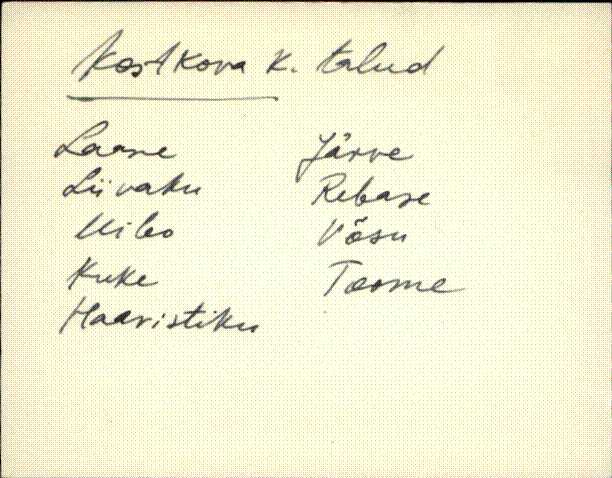 Kostkova k. talud
Laane
Liivaku
Uibo
Kuke
Haavistiku
Järve
Rebase
Võsu
Toome